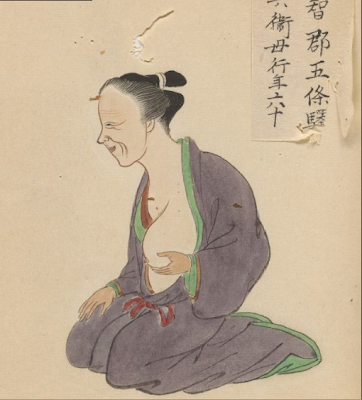 智郡五條驛
兵衛母行年六十